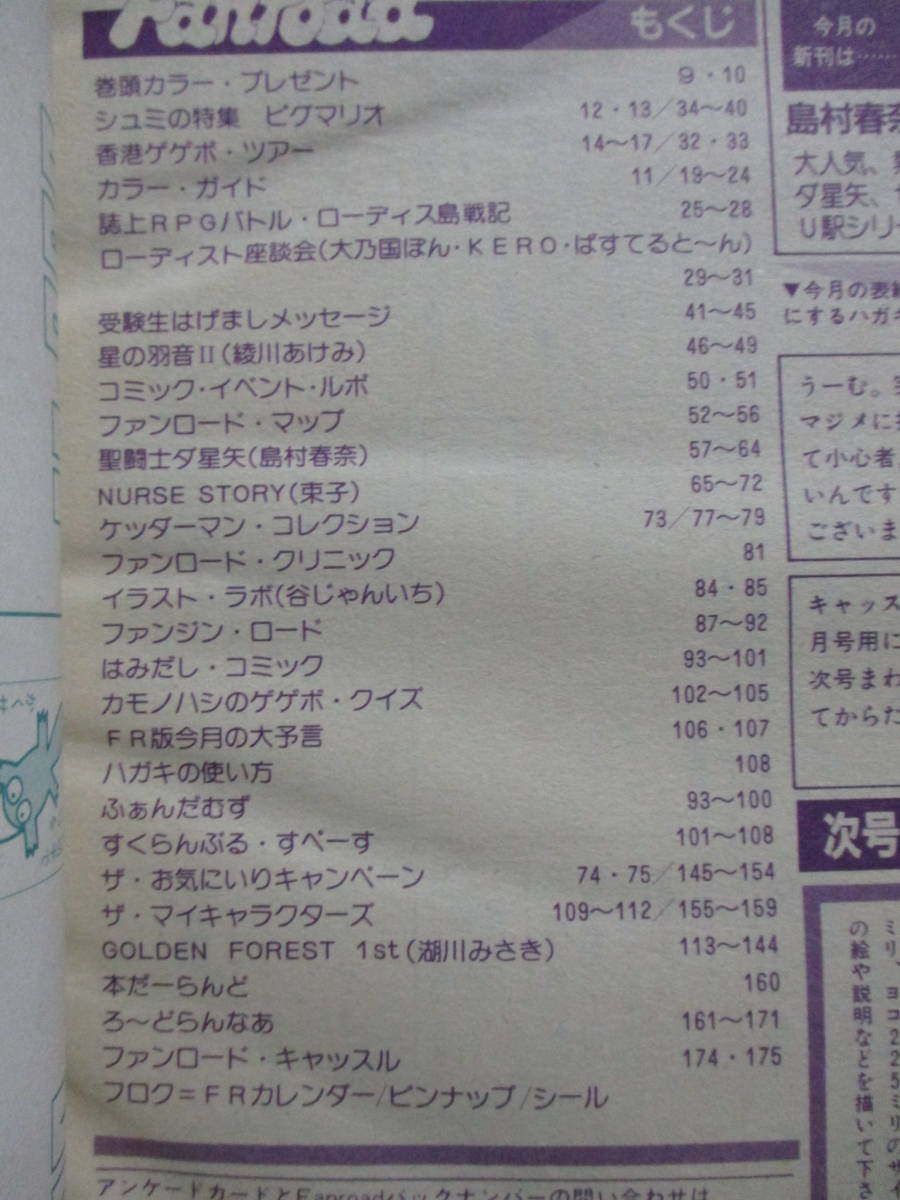 Fanroad もくじ
巻頭カラー・プレゼント 9・10
シュミの特集 ピグマリオ 12・13/34〜40
香港ゲゲボ・ツアー 14〜17/32・33
カラー・ガイド 11/19〜24
誌上RPGバトル・ローディス島戦記 25〜28
ローディスト座談会(大乃国ぽん・KERO・ぱすてると〜ん)
29〜31
受験生はげましメッセージ 41〜45
星の羽音II(綾川あけみ) 46〜49
コミック・イベント・ルポ 50・51
ファンロード・マップ 52〜56
聖闘士ダ星矢(島村春奈) 57〜64
NURSE STORY(束子) 65〜72
ケッダーマン・コレクション 73/77〜79
ファンロード・クリニック 81
イラスト・ラボ(谷じゃんいち) 84・85
ファンジン・ロード 87〜92
はみだし・コミック 93〜101
カモノハシのゲゲボ・クイズ 102〜105
FR版今月の大予言 106・107
ハガキの使い方 108
ふぁんだむず 93〜100
すくらんぶる・すぺーす 101〜108
ザ・お気にいりキャンペーン 74・75/145〜154
ザ・マイキャラクターズ 109〜112/155〜159
GOLDEN FOREST 1st(湖川みさき) 113〜144
本だーらんど 160
ろ〜どらんなあ 161〜171
ファンロード・キャッスル 174・175
フロク=FRカレンダー/ピンナップ/シール
アンケートカードとFanroadバックナンバーの問い合わせは
今月の
新刊は……
島村春奈
大人気、
ダ星矢、
U駅シリー
▼今月の表紙
にするハガキ
うーむ。
マジメに
て小心者
いんです
ございま
キャッス
月号用に
次号まわ
てからだ
次号
の絵や説明などを描いて下さ